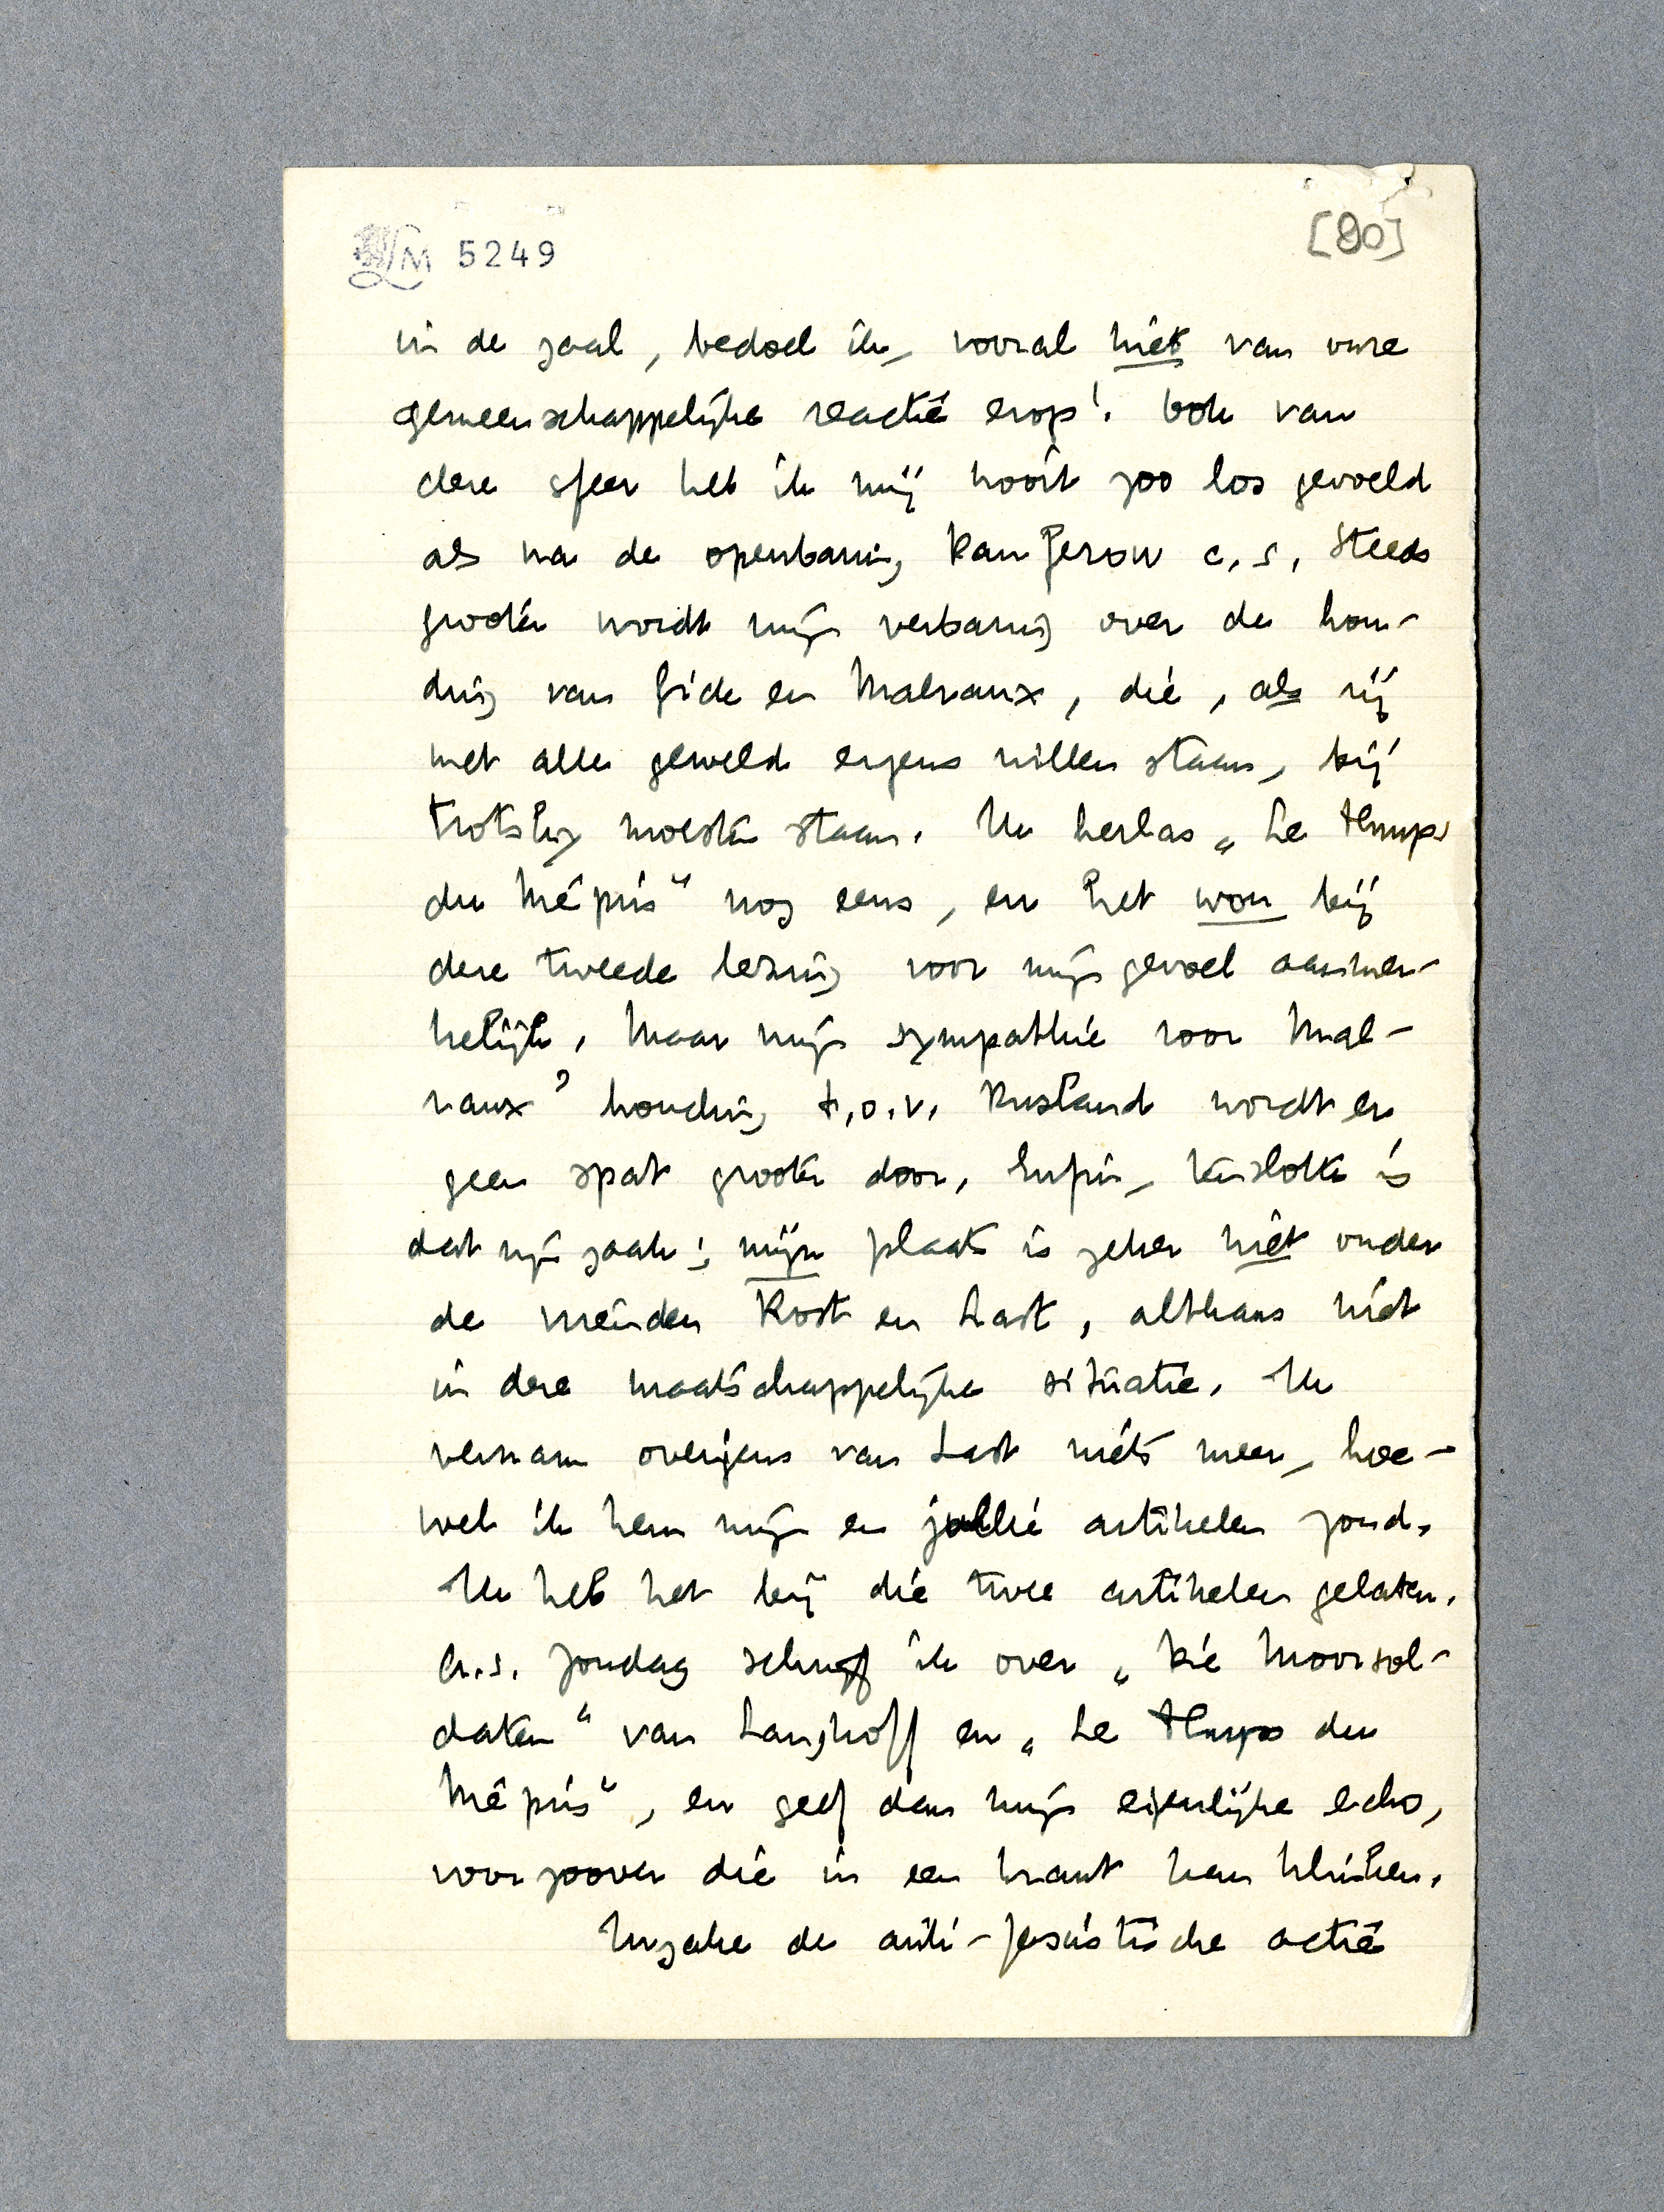 LM 5249
[80]
in de zaal, bedoel ik, vooral niet van onze
gemeenschappelijke reactie erop! Ook van
deze sfeer heb ik mij nooit zoo los gevoeld
als na de openbaring Kamjenow c.s. Steeds
grooter wordt mijn verbazing over de hou-
ding van Gide en Malraux, die, als zij
met alle geweld ergens willen staan, bij
Trotsky moesten staan. Ik herlas „Le Temps
du Mépris” nog eens, en het won bij
deze tweede lezing voor mijn gevoel aanmer-
kelijk. Maar mijn sympathie voor Mal-
raux' houding t.o.v. Rusland wordt er
geen spat grooter door. Enfin, tenslotte is
dat zijn zaak; mijn plaats is zeker niet onder
de vrienden Rost en Last, althans niet
in deze maatschappelijke situatie. Ik
vernam overigens van Last niets meer, hoe-
wel ik hem mijn en jullie artikelen zond.
Ik heb het bij die twee artikelen gelaten.
A.s. Zondag schrijf ik over „Die Moorsol-
daten” van Langhoff en „Le Temps du
Mépris”, en geef dan mijn eigenlijke echo,
voor zoover die in een krant kan klinken.
Inzake de anti-fascistische actie